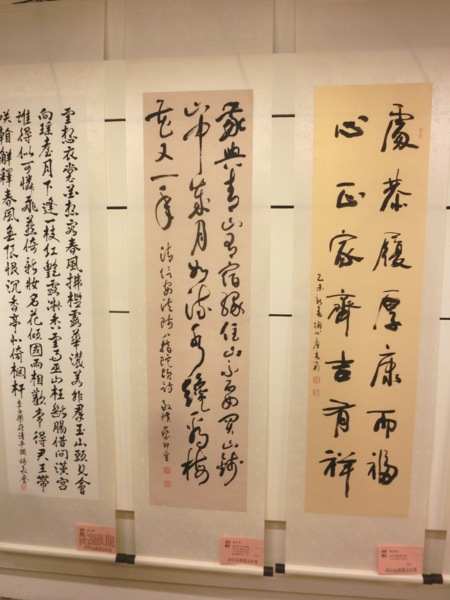 處恭履厚康而福
心正家齊吉有祥
乙未新春
我與青山有宿緣住山不要買山錢
山中歲月如流水纔看梅
花又一年
雲想衣裳花想容春風拂檻露華濃若非群玉山頭見會
向瑤臺月下逢一枝紅艷露凝香雲雨巫山枉斷腸借問漢宮
誰得似可憐飛燕倚新妝名花傾國兩相歡常得君王帶
咲看解釋春風無限恨沉香亭北倚欄杆 李白樂府清平調